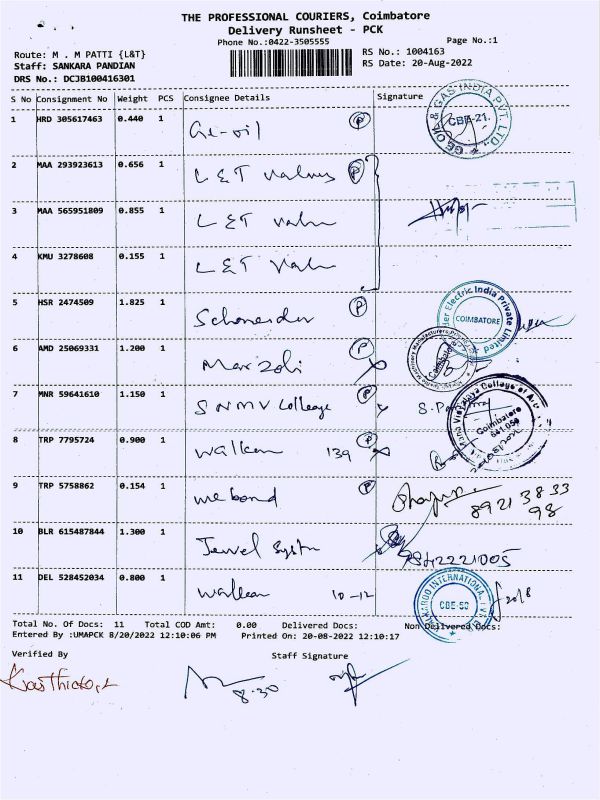 THE PROFESSIONAL COURIERS, Coimbatore
Delivery Runsheet - PCK
Phone No.:0422-3505555
Page No.:1
Route: M . M PATTI {L&T}
RS No.: 1004163
Staff: SANKARA PANDIAN
RS Date: 20-Aug-2022
DRS No.: DCJB100416301
S No Consignment No Weight PCS Consignee Details Signature
1 HRD 305617463 0.440 1 Ge-oil P
GE OIL & GAS INDIA PVT. LTD. CBE-21.
2 MAA 293923613 0.656 1 L&T Valves P
3 MAA 565951809 0.855 1 L&T Valve
4 KMU 3278608 0.155 1 L&T Valve
5 HSR 2474509 1.825 1 Schneider P
Electric India Private Limited COIMBATORE
6 AMD 25069331 1.200 1 Marzoli P
7 MNR 59641610 1.150 1 SNMV College P
College of Coimbatore 641 050
8 TRP 7795724 0.900 1 139 P
9 TRP 5758862 0.154 1 we bond P
8921 3833
98
10 BLR 615487844 1.300 1 Jewel System
9842221005
11 DEL 528452034 0.800 1 10-12
INTERNATIONAL CBE-50
20/8
Total No. Of Docs: 11 Total COD Amt: 0.00 Delivered Docs: Non Delivered Docs:
Entered By :UMAPCK 8/20/2022 12:10:06 PM Printed On: 20-08-2022 12:10:17
Verified By Staff Signature
8.30